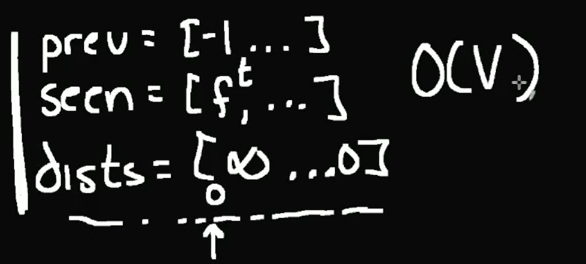 prev = [-1 ... ]
O(V)
seen = [f t, ... ]
dists = [∞ ... 0]
0